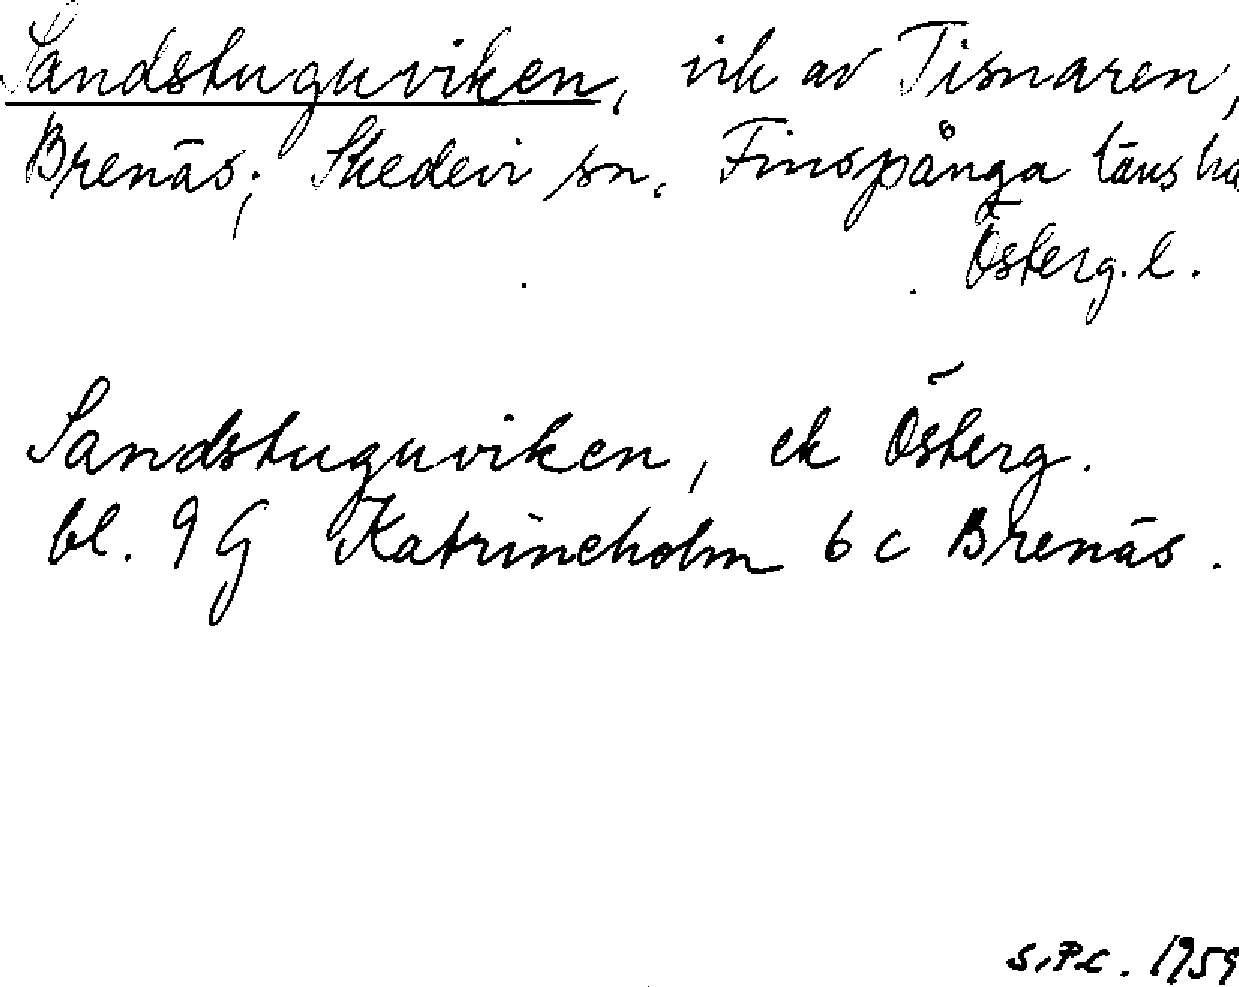 Sandstuguviken, vik av Tisnaren,
Brenäs; Skedevi sn, Finspånga läns hd
Österg. l.
Sandstuguviken, ek Österg.
bl. 9 G Katrineholm 6 c Brenäs.
S.P.C. 1959